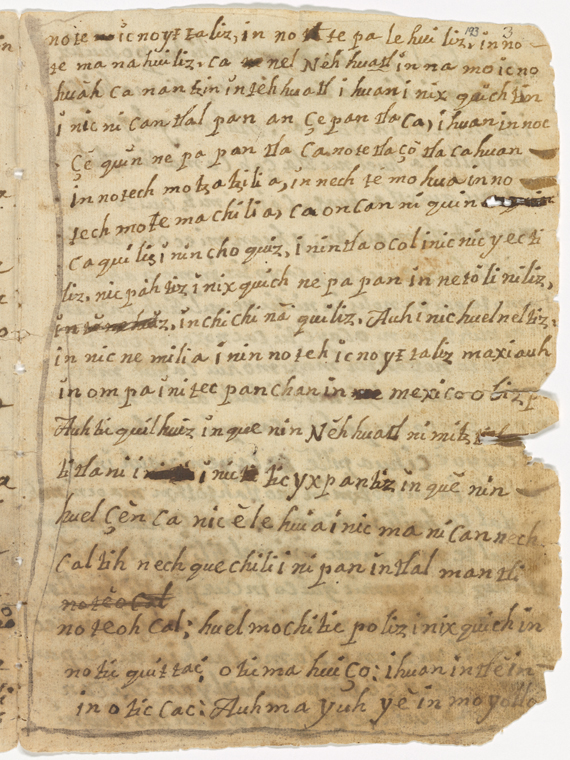 193 3
noteicnoyttaliz, in notetepalehuiliz, inno
temanahuiliz, ca nel Nèhhuatl innamoicno
huàh ca nantzin in tèhhuatl ihuan inixquichtin
inicnican tlalpan an Çepan tlaca, ihuan innoc
Çēquin nepapan tlaca notetlaçòtlacahuan
innotech motzatzilia, innechtemohua inno
techmotemachilia, ca oncan niquin
caquiliz inin choquiz, inin tlaocol inic nicyecti
liz, nicpàhtiz inixquich nepapan innetoliniliz,
inchichinacaquiliz, Auh inic huel neltiz,
in nicnemilia inin noteh icnoyttaliz maxiauh
in ompa initecpanchan in mexico obiz
Auh tic quilhuiz inquenin Nèhhuatl nimitz
titlani inic ticyxpantiz in quēnin
huel Çēnca nicēlehuia inic manican nech
caltih nechquechili inipan in tlalmantli
noteohcal; huel mochi ticpoliz inixquich in
notic quittac, oticmahuiço; ihuan intlèin
in otic cac: Auh ma yuh yē in moyollo